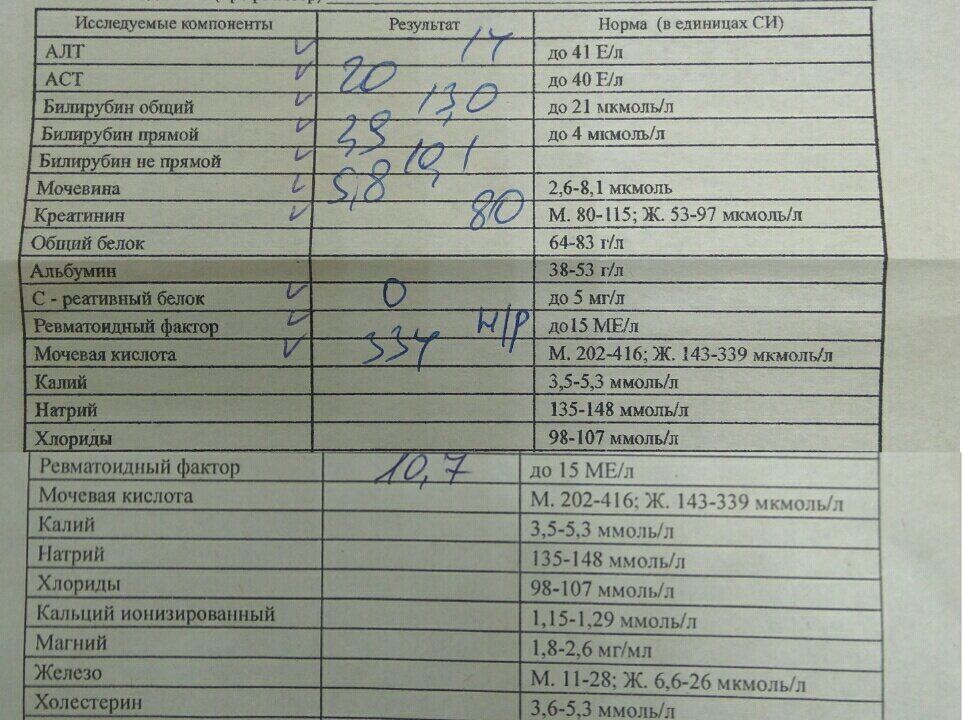 Исследуемые компоненты Результат Норма (в единицах СИ)
АЛТ 14 до 41 Е/л
АСТ 20 до 40 Е/л
Билирубин общий 13,0 до 21 мкмоль/л
Билирубин прямой до 4 мкмоль/л
Билирубин не прямой 10,1
Мочевина 5,8 2,6-8,1 мкмоль
Креатинин 80 М. 80-115; Ж. 53-97 мкмоль/л
Общий белок 64-83 г/л
Альбумин 38-53 г/л
С - реативный белок 0 до 5 мг/л
Ревматоидный фактор Н/Р до15 МЕ/л
Мочевая кислота 334 М. 202-416; Ж. 143-339 мкмоль/л
Калий 3,5-5,3 ммоль/л
Натрий 135-148 ммоль/л
Хлориды 98-107 ммоль/л
Ревматоидный фактор 10,7 до 15 МЕ/л
Мочевая кислота М. 202-416; Ж. 143-339 мкмоль/л
Калий 3,5-5,3 ммоль/л
Натрий 135-148 ммоль/л
Хлориды 98-107 ммоль/л
Кальций ионизированный 1,15-1,29 ммоль/л
Магний 1,8-2,6 мг/мл
Железо М. 11-28; Ж. 6,6-26 мкмоль/л
Холестерин 3,6-5,3 ммоль/л